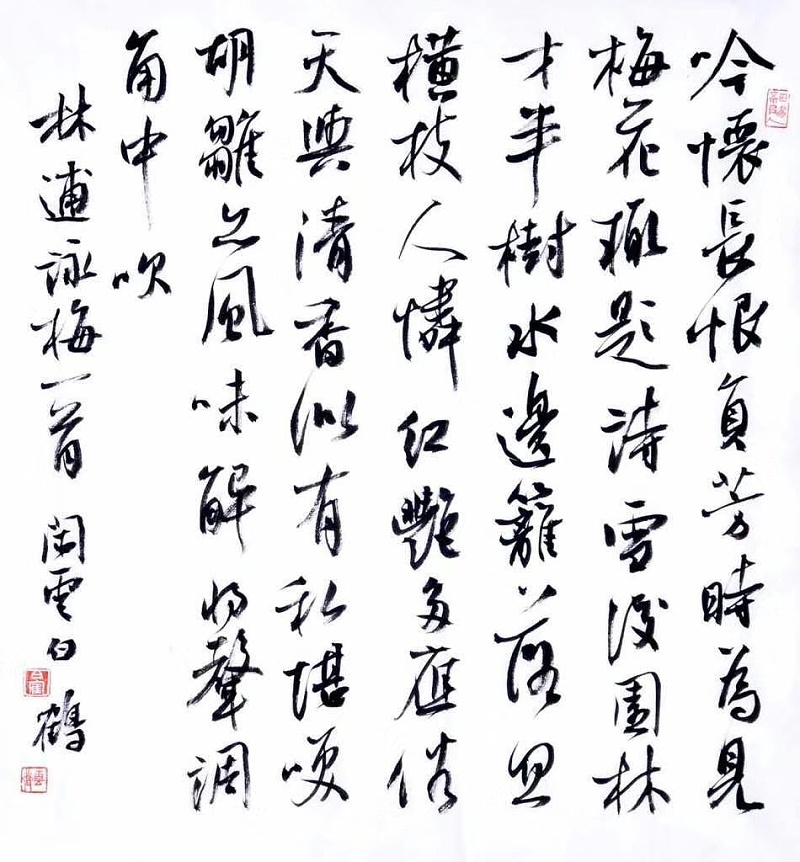 吟懷長恨負芳時為見
梅花輒詩雪後園林
才半樹水邊籬落忽
橫枝人憐紅艷多應俗
天與清香似有私堪咲
胡雛亦風味解將聲調
角中吹
林逋詠梅一首 閑雲白鶴